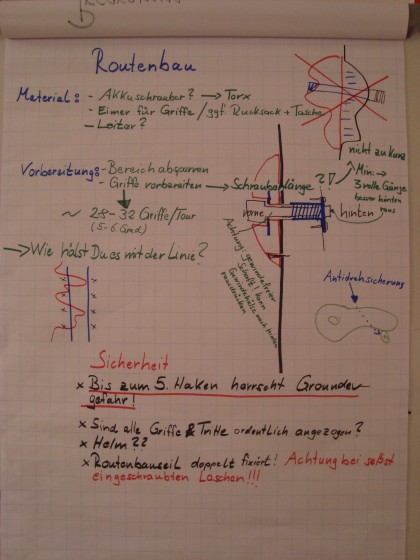 Routenbau
Material: - AKKuschrauber? → Torx
- Eimer für Griffe / ggf. Rucksack + Tasche
- Leiter?
nicht zu kurz
Vorbereitung: - Bereich absperren
- Griffe vorbereiten → Schraubenlänge ?!
Min: → 3 volle Gänge
besser hinten
raus
~ 28-32 Griffe/Tour
(5-6 Grad)
vorne
hinten
Achtung: gewindefreier
Schaft! kann
Gewindehülse nach hinten
rausdrücken
→ Wie hälst Du es mit der Linie?
Antidrehsicherung
Sicherheit
x Bis zum 5. Haken herrscht Grounder
gefahr!
x Sind alle Griffe & Tritte ordentlich angezogen?
x Helm??
x Routenbauseil doppelt fixiert! Achtung bei selbst
eingeschraubten Laschen!!!